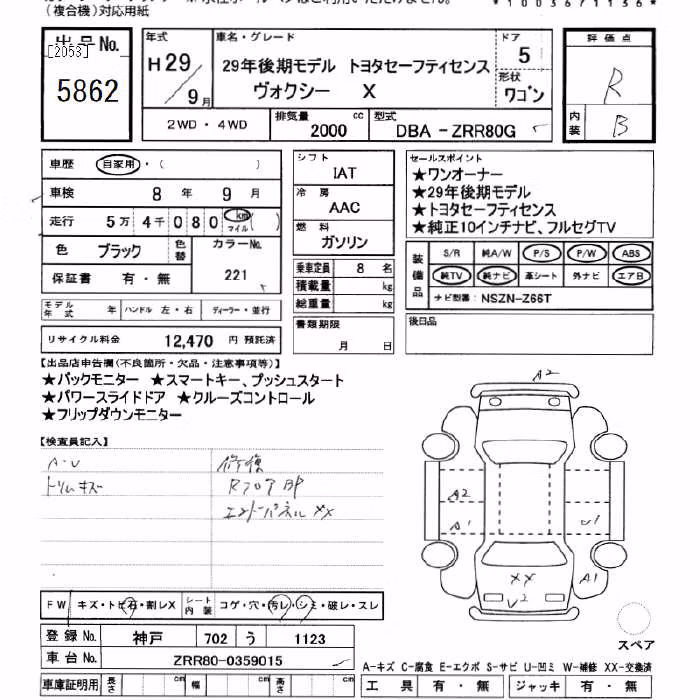 (複合機)対応用紙
*10036/1136*
出品No. [2053] 5862
年式 H29/9月
車名・グレード 29年後期モデル トヨタセーフティセンス
ヴォクシー X
ドア 5
形状 ワゴン
評価点 R
内装 B
2WD・4WD
排気量 2000 cc
型式 DBA-ZRR80G
車歴 自家用・( )
車検 8年 9月
走行 5万4千080 km マイル ( )
色 ブラック 色替 カラーNo. 221
保証書 有・無
モデル年式 年 ハンドル 左・右 ディーラー・並行
リサイクル料金 12,470 円 預託済
シフト IAT
冷房 AAC
燃料 ガソリン
乗車定員 8 名
積載量 kg
総重量 kg
書類期限 月 日
セールスポイント
★ワンオーナー
★29年後期モデル
★トヨタセーフティセンス
★純正10インチナビ、フルセグTV
装備品 S/R 純A/W P/S P/W ABS
純TV 純ナビ 革シート 外ナビ エアB
ナビ型番: NSZN-Z66T
後日品
【出品店申告欄(不良箇所・欠品・注意事項等)】
★バックモニター ★スマートキー、プッシュスタート
★パワースライドドア ★クルーズコントロール
★フリップダウンモニター
【検査員記入】
A・U 修復
トリムキズ RフロアBP
エンドパネルXX
A2
A2
A1
U1
A1
XX
U2
FW キズ・トビ石・割レX シート内装 コゲ・穴・汚レ・シミ・破レ・スレ
登録No. 神戸 702 う 1123
車台No. ZRR80-0359015
車庫証明用 長さ cm 幅 cm 高さ cm
スペア
A-キズ C-腐食 E-エクボ S-サビ U-凹ミ W-補修 XX-交換済
工具 有・無 ジャッキ 有・無